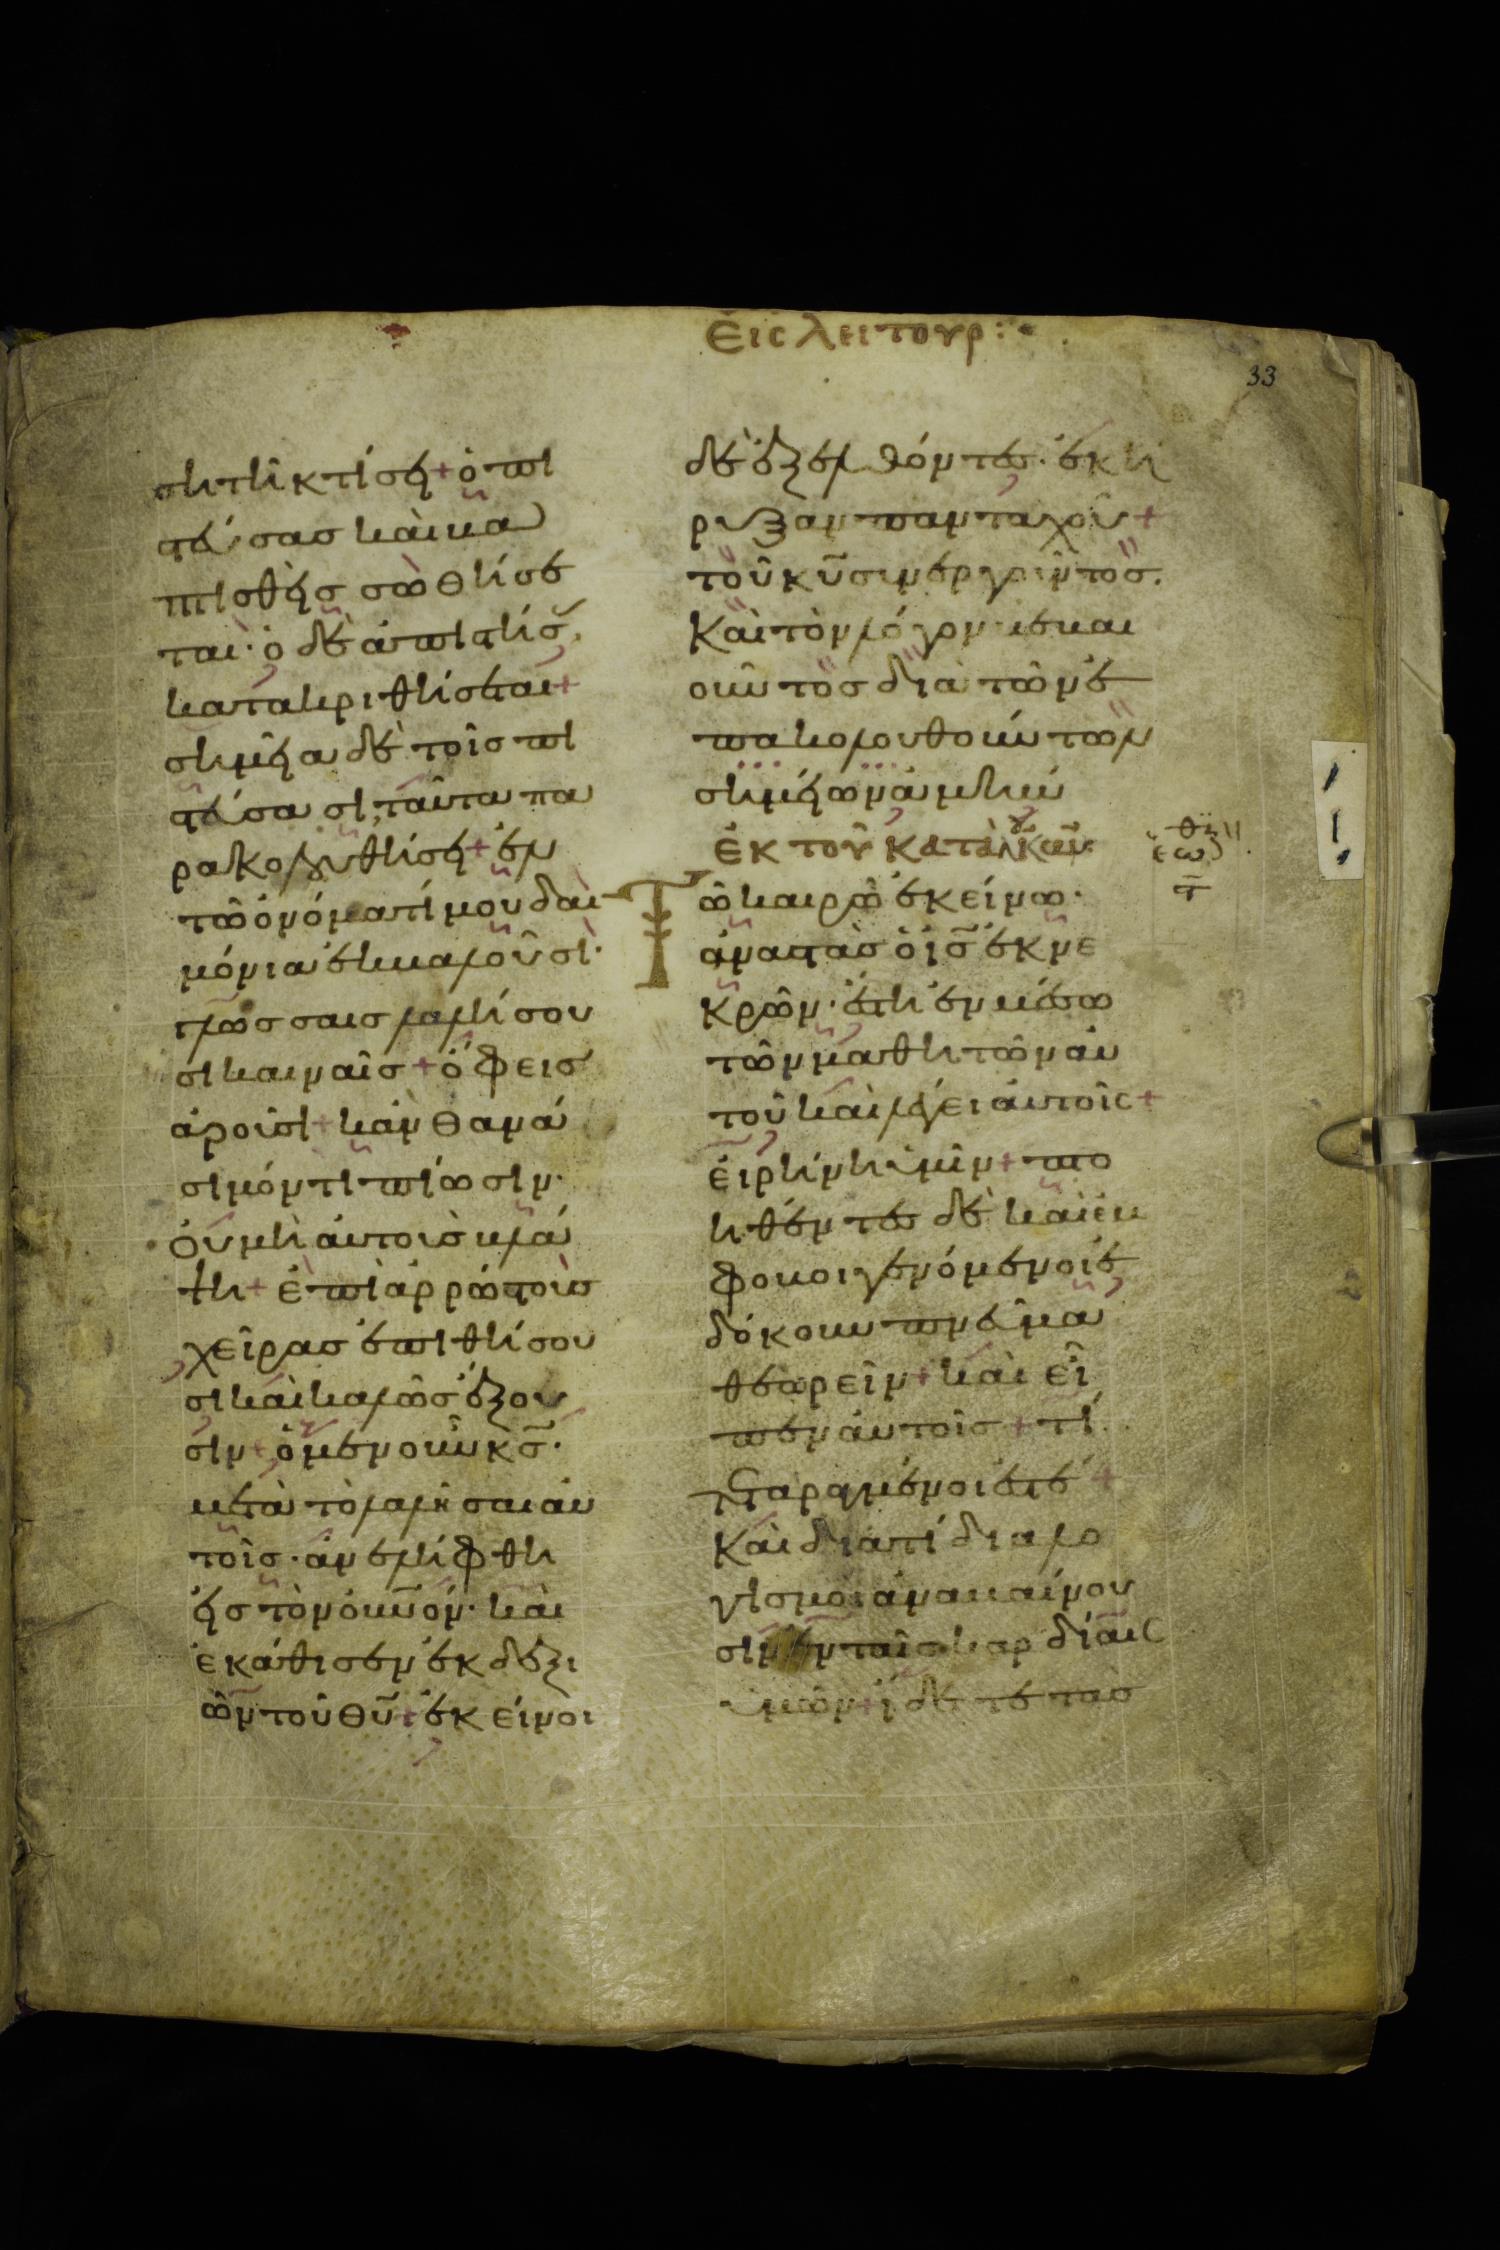 Εἰς λειτουρ:
33
ση τῆ κτίσει + ὁ πι
στεύσας καὶ βα
πτισθεὶς σωθήσε
ται· ὁ δὲ ἀπιστήσ,
κατακριθήσεται +
σημεῖα δὲ τοῖς πι
στεύσασι ταῦτα πα
ρακολουθήσει + ἐν
τῶ ὀνόματί μου δαι
μόνια ἐκβαλοῦσι·
γλώσσαις λαλήσου
σι καιναῖς + ὄφεις
ἀροῦσι + κἂν θανά
σιμόν τι πίωσιν·
οὐ μὴ αὐτοὺς βλά
ψη + ἐπὶ ἀρρώστους
χεῖρας ἐπιθήσου
σι καὶ καλῶς ἕξου
σιν + ὁ μὲν οὖν κς·
μετὰ τὸ λαλῆσαι αὐ
τοῖς· ἀνελήφθη
εἰς τὸν οὐνόν· καὶ
ἐκάθισεν ἐκ δεξι
ῶν τοῦ θυ + ἐκεῖνοι
δὲ ἐξελθόντες· ἐκή
ρυξαν πανταχοῦ +
τοῦ κυ συνεργοῦντος.
Καὶ τὸν λόγον βεβαι
οῦντος διὰ τῶν ἐ
πακολουθούντων
σημείων ἀμήν
ἐκ τοῦ κατὰ λουκᾶν
Τῶ καιρῶ ἐκείνω·
ἀναστὰς ὁ ις ἐκ νε
κρῶν· ἔστη ἐν μέσω
τῶν μαθητῶν αὐ
τοῦ καὶ λέγει αὐτοῖς +
εἰρήνη ὑμῖν + πτο
ηθέντες δὲ καὶ ἔμ
φοβοι γενόμενοι ἐ
δόκουν πνεῦμα
θεωρεῖν + καὶ εἶ
πεν αὐτοῖς + τί
τεταραγμένοι ἐστέ +
Καὶ διατί διαλο
γισμοὶ ἀναβαίνου
σιν ἐν ταῖς καρδίαις
ὑμῶν + ἴδετε τὰς